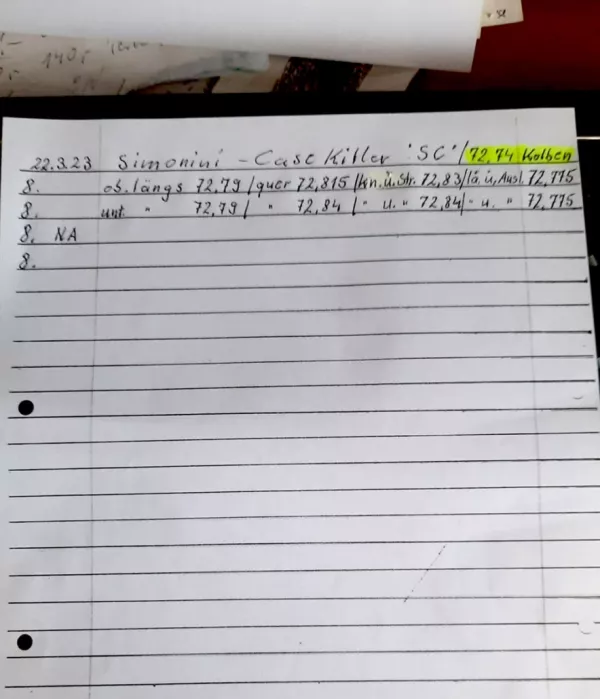 140,-
22.3.23 Simonini - Case Killer "SC" / 72,74 Kolben
8. ob. längs 72,79 / quer 72,815 / kn. ü. Str. 72,83 / lä. ü. Ausl. 72,775
8. unt. " 72,79 / " 72,84 / " ü. " 72,84 / " ü. " 72,775
8. NA
8.